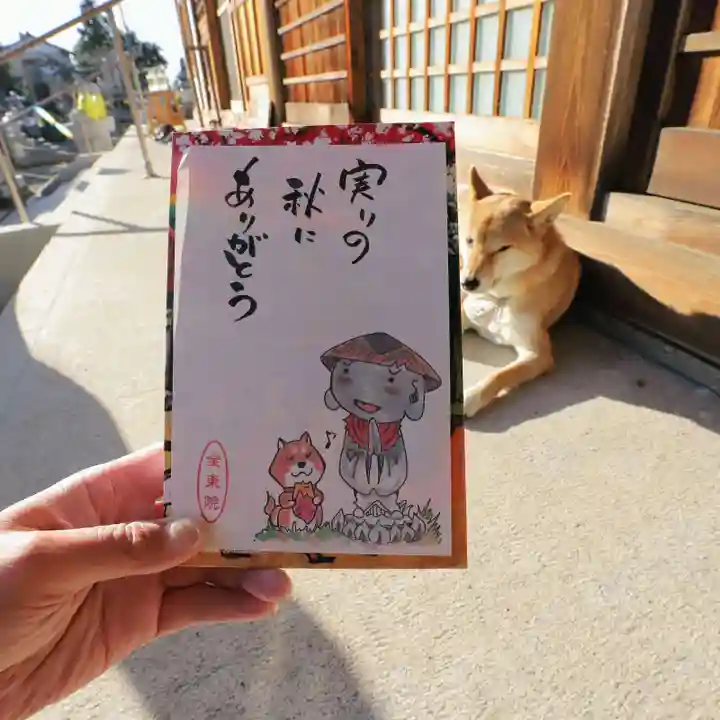 実りの
秋に
ありがとう
全東院